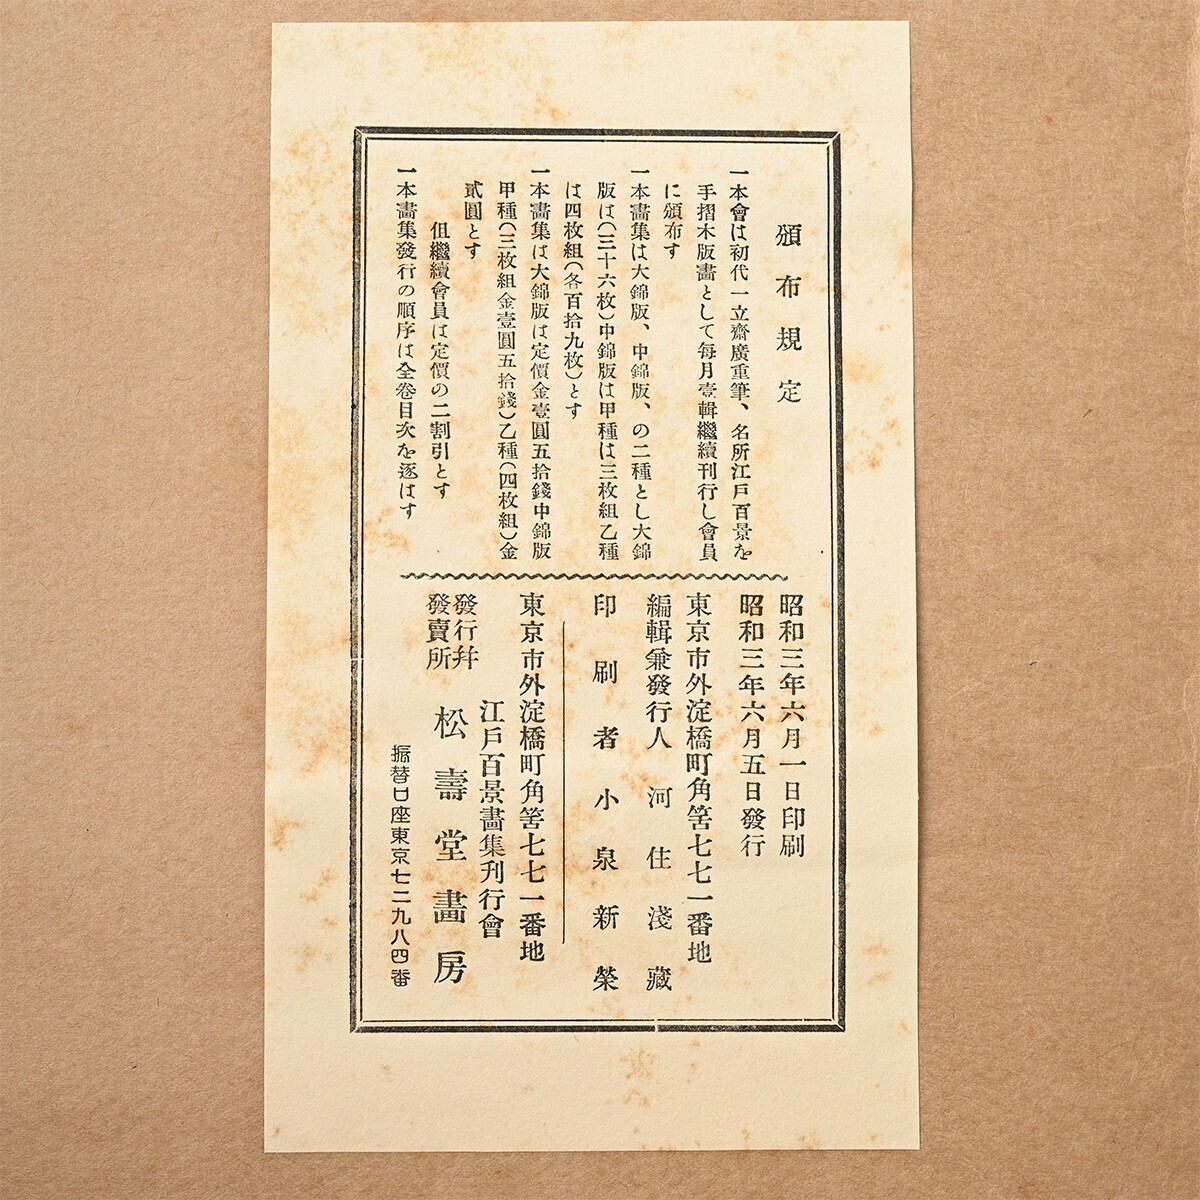 頒布規定
一本會は初代一立齋廣重筆、名所江戸百景を
手摺木版畵として每月壹輯繼續刊行し會員
に頒布す
一本畵集は大錦版、中錦版、の二種とし大錦
版は(三十六枚)中錦版は甲種は三枚組乙種
は四枚組(各百拾九枚)とす
一本畵集は大錦版は定價金壹圓五拾錢中錦版
甲種(三枚組金壹圓五拾錢)乙種(四枚組)金
貳圓とす
但繼續會員は定價の二割引とす
一本畵集發行の順序は全卷目次を逐はす
昭和三年六月一日印刷
昭和三年六月五日發行
東京市外淀橋町角筈七七一番地
編輯兼發行人 河住淺藏
印刷者 小泉新榮
東京市外淀橋町角筈七七一番地
江戸百景畵集刊行會
發行幷
發賣所 松壽堂畵房
振替口座東京七二九八四番